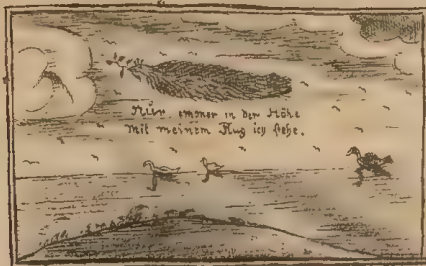 Nur immer in der Höhe
Mit meinem Flug ich stehe.